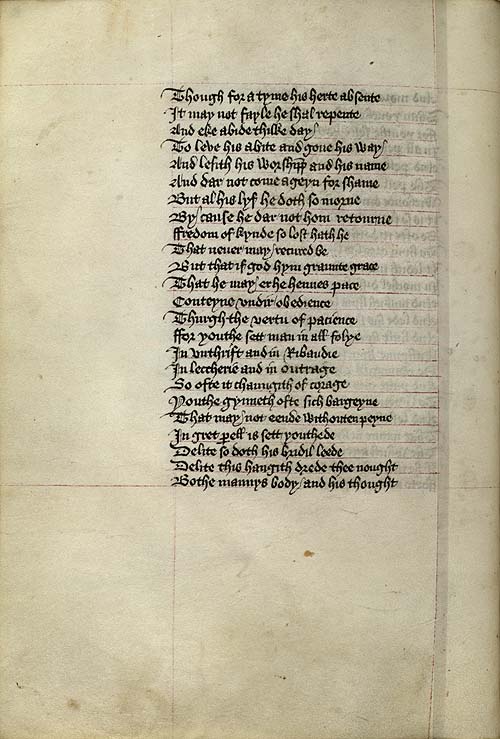 Though for a tyme his herte absente
It may not fayle he shal repente
And eke abide thilke day
To leve his abite and gone his way
And lesith his worshipp and his name
And dar not come ageyn for shame
But al his lyf he doth so morne
By cause he dar not hom retourne
ffredom of kynde so lost hath he
That never may recured be
But that if god hym graunte grace
That he may er he hennes pace
Conteyne undir obedience
Thurgh the vertu of pacience
ffor youthe sett man in all folye
In unthrift and in Ribaudie
In leccherie and in outrage
So ofte it chaungith of corage
Youthe gynneth ofte sich bargeyne
That may not eende withouten peyne
In gret pell is sett youthede
Delite so doth his bridil leede
Delite this hangith drede thee nought
Bothe mannys body and his thought